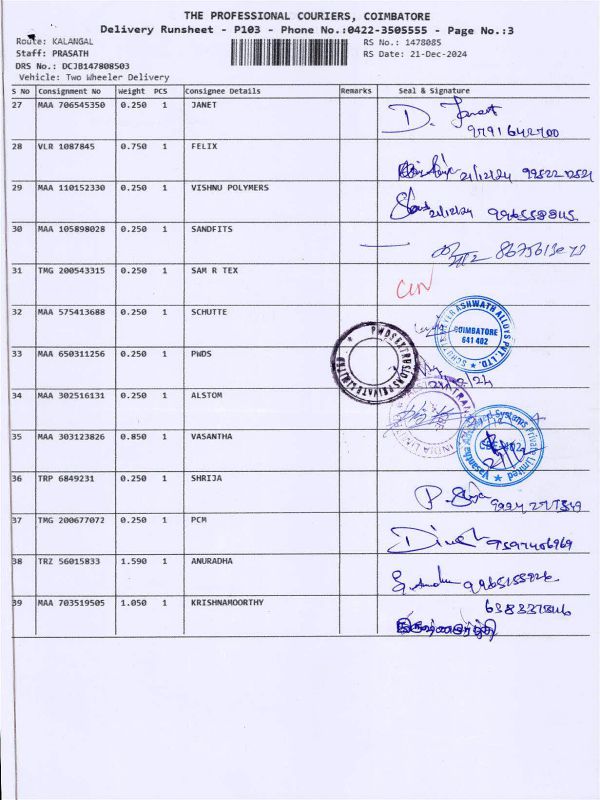 THE PROFESSIONAL COURIERS, COIMBATORE
Delivery Runsheet - P103 - Phone No.:0422-3505555 - Page No.:3
Route: KALANGAL RS No.: 1478085
Staff: PRASATH RS Date: 21-Dec-2024
DRS No.: DCJB147808503
Vehicle: Two Wheeler Delivery
S No Consignment No Weight PCS Consignee Details Remarks Seal & Signature
27 MAA 706545350 0.250 1 JANET D. Janet
28 VLR 1087845 0.750 1 FELIX 21/12/24
29 MAA 110152330 0.250 1 VISHNU POLYMERS 21/12/24
30 MAA 105898028 0.250 1 SANDFITS
31 TMG 200543315 0.250 1 SAM R TEX
32 MAA 575413688 0.250 1 SCHUTTE COIMBATORE 641 402
33 MAA 650311256 0.250 1 PWDS PWDS EXTRUSIONS PRIVATE LIMITED
34 MAA 302516131 0.250 1 ALSTOM INDIA LIMITED
35 MAA 303123826 0.850 1 VASANTHA Systems Private Limited
36 TRP 6849231 0.250 1 SHRIJA
37 TMG 200677072 0.250 1 PCM 9597406969
38 TRZ 56015833 1.590 1 ANURADHA
39 MAA 703519505 1.050 1 KRISHNAMOORTHY